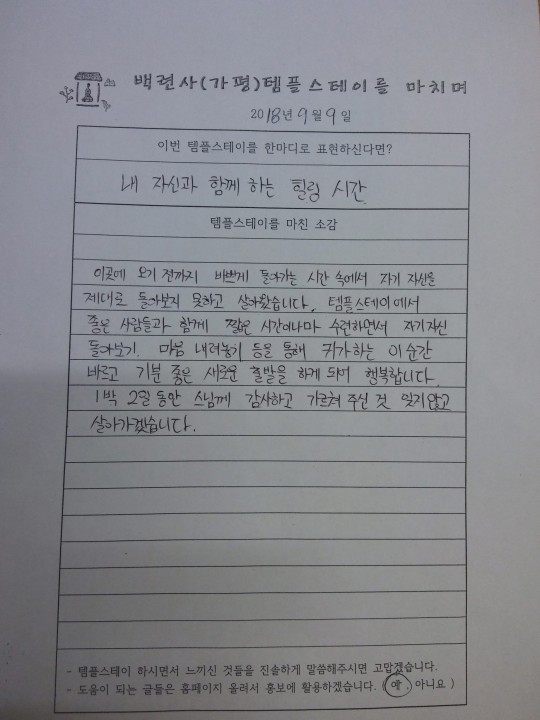 백련사(가평)템플스테이를 마치며
2018년 9월 9일
이번 템플스테이를 한마디로 표현하신다면?
내 자신과 함께 하는 힐링 시간.
템플스테이를 마친 소감
이곳에 오기 전까지 바쁘게 돌아가는 시간 속에서 자기 자신을
제대로 돌아보지 못하고 살아왔습니다. 템플스테이에서
좋은 사람들과 함께 짧은 시간이나마 수련하면서 자기자신
돌아보기. 마음 내려놓기 등을 통해 귀가하는 이 순간
바르고 기분 좋은 새로운 출발을 하게 되어 행복합니다.
1박 2일 동안 스님께 감사하고 가르쳐 주신 것 잊지않고
살아가겠습니다.
- 템플스테이 하시면서 느끼신 것들을 진솔하게 말씀해주시면 고맙겠습니다.
- 도움이 되는 글들은 홈페이지 올려서 홍보에 활용하겠습니다. ( 예, 아니요 )